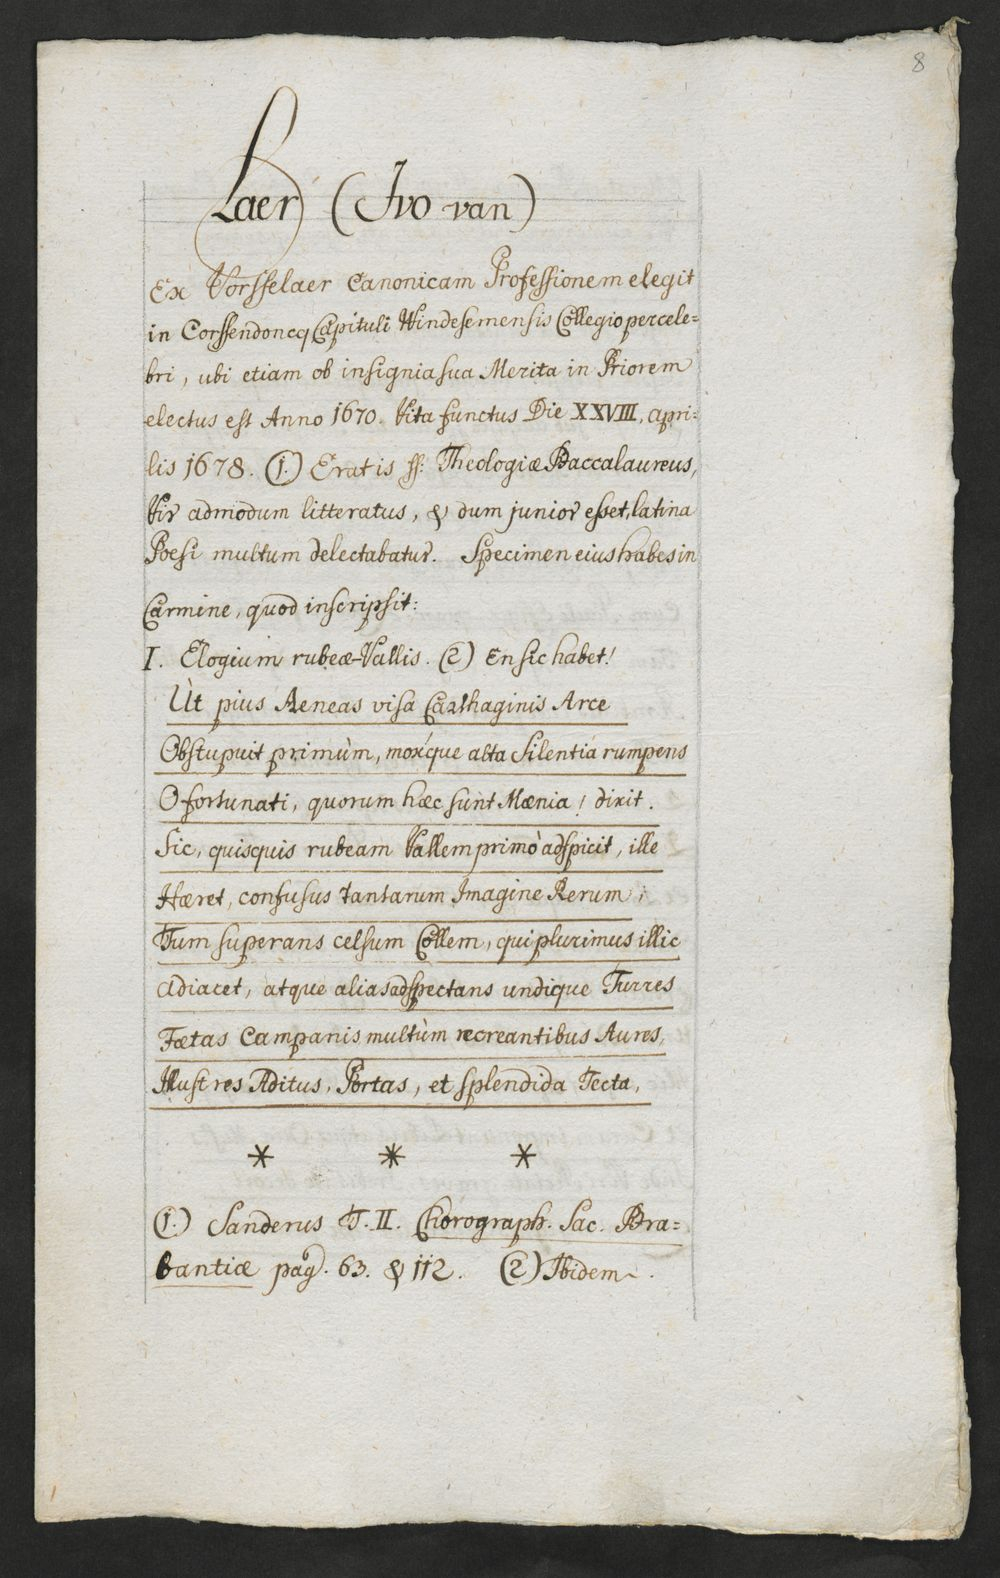 8
Laer (Ivo van)
Ex Vorsselaer Canonicam Professionem elegit
in Corssendoncq Capituli Windesemensis Collegio percele=
bri, ubi etiam ob insignia sua Merita in Priorem
electus est Anno 1670. Vita functus Die XXVIII, apri=
lis 1678. (1.) Erat is ss. Theologiæ Baccalaureus,
Vir admodum litteratus, & dum junior esset, latina
Poesi multum delectabatur. Specimen eius habes in
Carmine, quod inscripsit:
I. Elogium rubeæ-Vallis. (2) en sic habet!
Ut pius Aeneas visa Carthaginis Arce
Obstupuit primùm, moxque alta Silentia rumpens
O fortunati, quorum hæc sunt Mœnia! dixit.
Sic, quisquis rubeam Vallem primò adspicit, ille
Hæret, confusus tantarum Imagine Rerum;
Tum superans celsum Collem, qui plurimus illic
adiacet, atque alias adspectans undique Turres
Fœtas Campanis multùm recreantibus Aures,
Illustres Aditus, Portas, et splendida Tecta,
* * *
(1.) Sanderus T. II. Chorograph. Sac. Bra=
bantiæ pag. 63. & 112. (2) Ibidem.